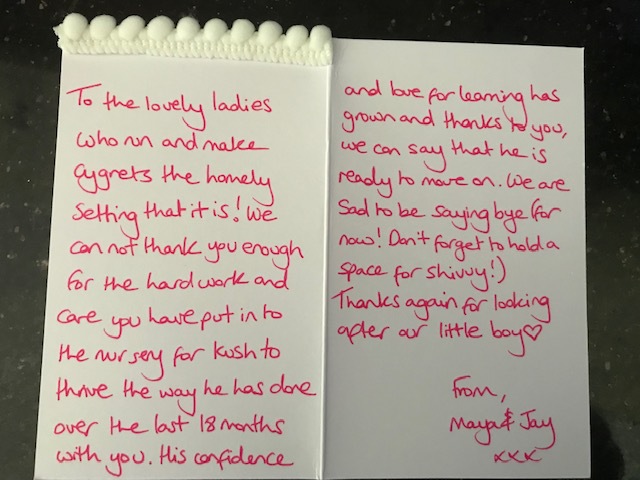 To the lovely ladies
who run and make
Cygnets the homely
setting that it is! We
can not thank you enough
for the hard work and
care you have put in to
the nursery for Kush to
thrive the way he has done
over the last 18 months
with you. His confidence
and love for learning has
grown and thanks to you,
we can say that he is
ready to move on. We are
sad to be saying bye (for
now! Don't forget to hold a
space for shivvy!)
Thanks again for looking
after our little boy♡
From,
Maya & Jay
xxx